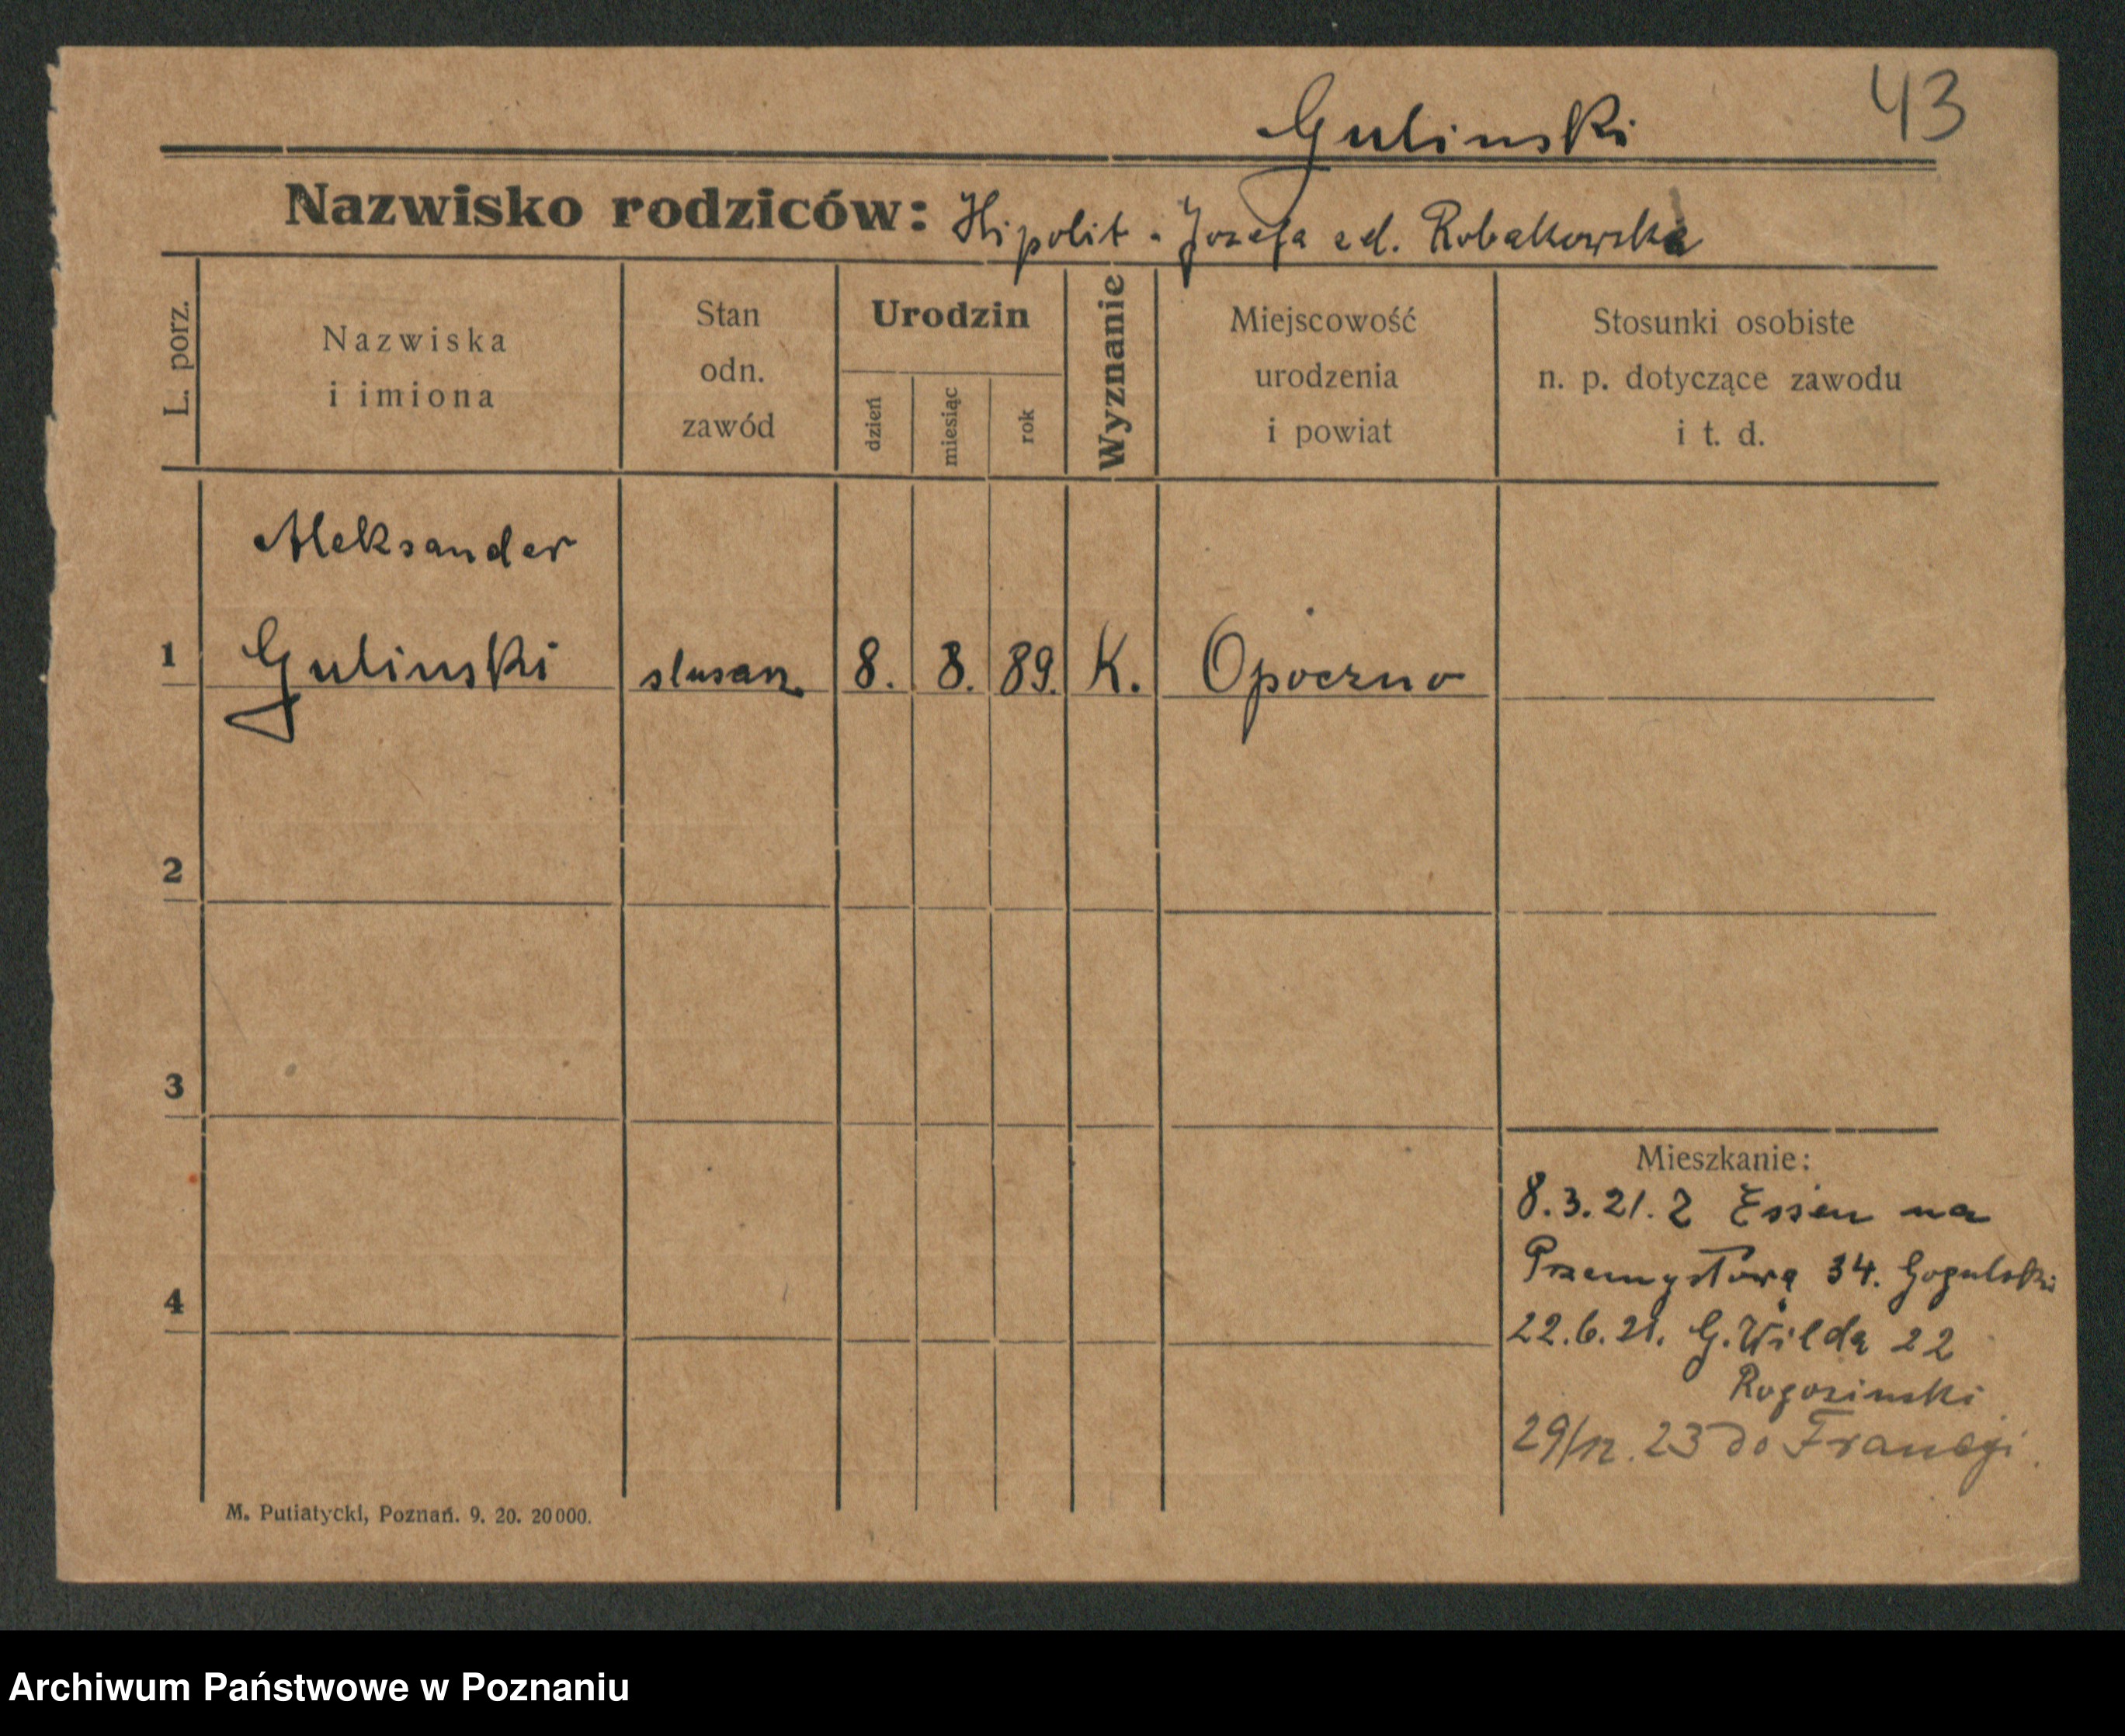 43
Gulinski
Nazwisko rodziców: Hipolit - Jozefa zd. Robakowska
L. porz.
Nazwiska
i imiona
Stan
odn.
zawód
Urodzin
dzień
miesiąc
rok
Wyznanie
Miejscowość
urodzenia
i powiat
Stosunki osobiste
n. p. dotyczące zawodu
i t. d.
Aleksander
1 Gulinski slusarz. 8. 8. 89. K. Opoczno
2
3
4
Mieszkanie:
8.3.21. z Essen na
Przemysłową 34. Gogulski
22.6.21. G. Wildą 22
Rogozinski
29/12. 23 do Francji.
M. Putiatycki, Poznań. 9. 20. 20000.
Archiwum Państwowe w Poznaniu